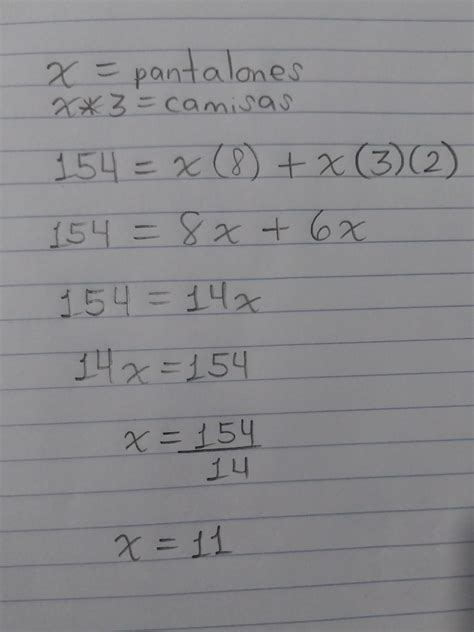 x = pantalones
x*3 = camisas
154 = x(8) + x(3)(2)
154 = 8x + 6x
154 = 14x
14x = 154
x = 154/14
x = 11